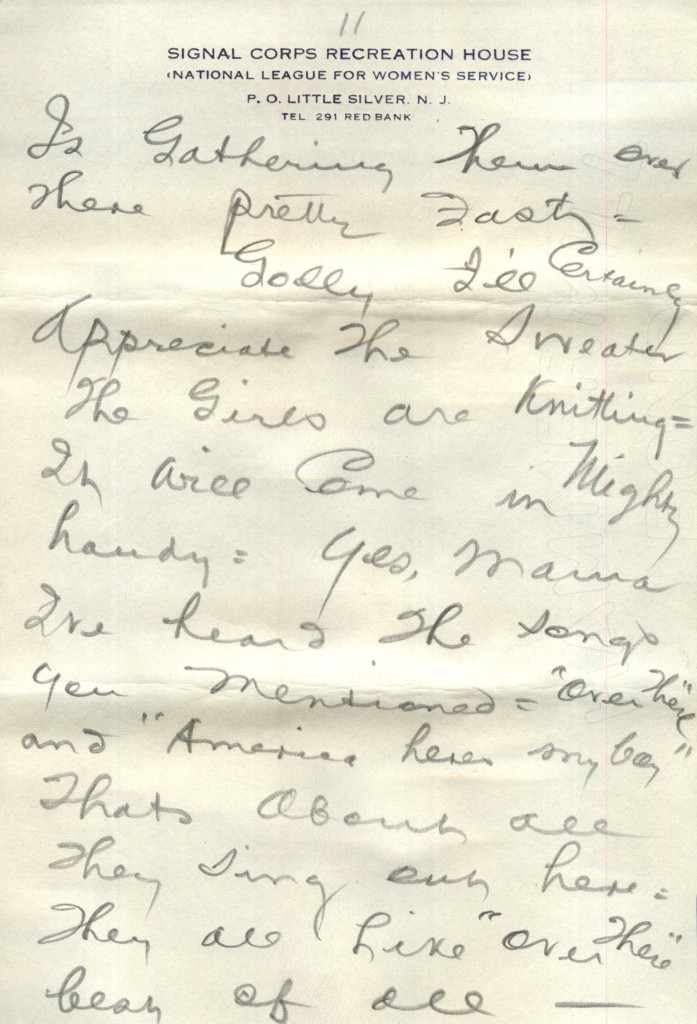 11
SIGNAL CORPS RECREATION HOUSE
(NATIONAL LEAGUE FOR WOMEN'S SERVICE)
P. O. LITTLE SILVER. N. J.
TEL 291 RED BANK
Is Gathering Them over
There pretty Fast =
Golly I'll Certainly
Appreciate The Sweater
The Girls are Knitting =
It will Come in Mighty
handy = Yes, Mama
I've heard The songs
you mentioned = "Over There"
and "America heres my boy"
Thats About all
They Sing out here =
They all Like "Over There"
best of all —